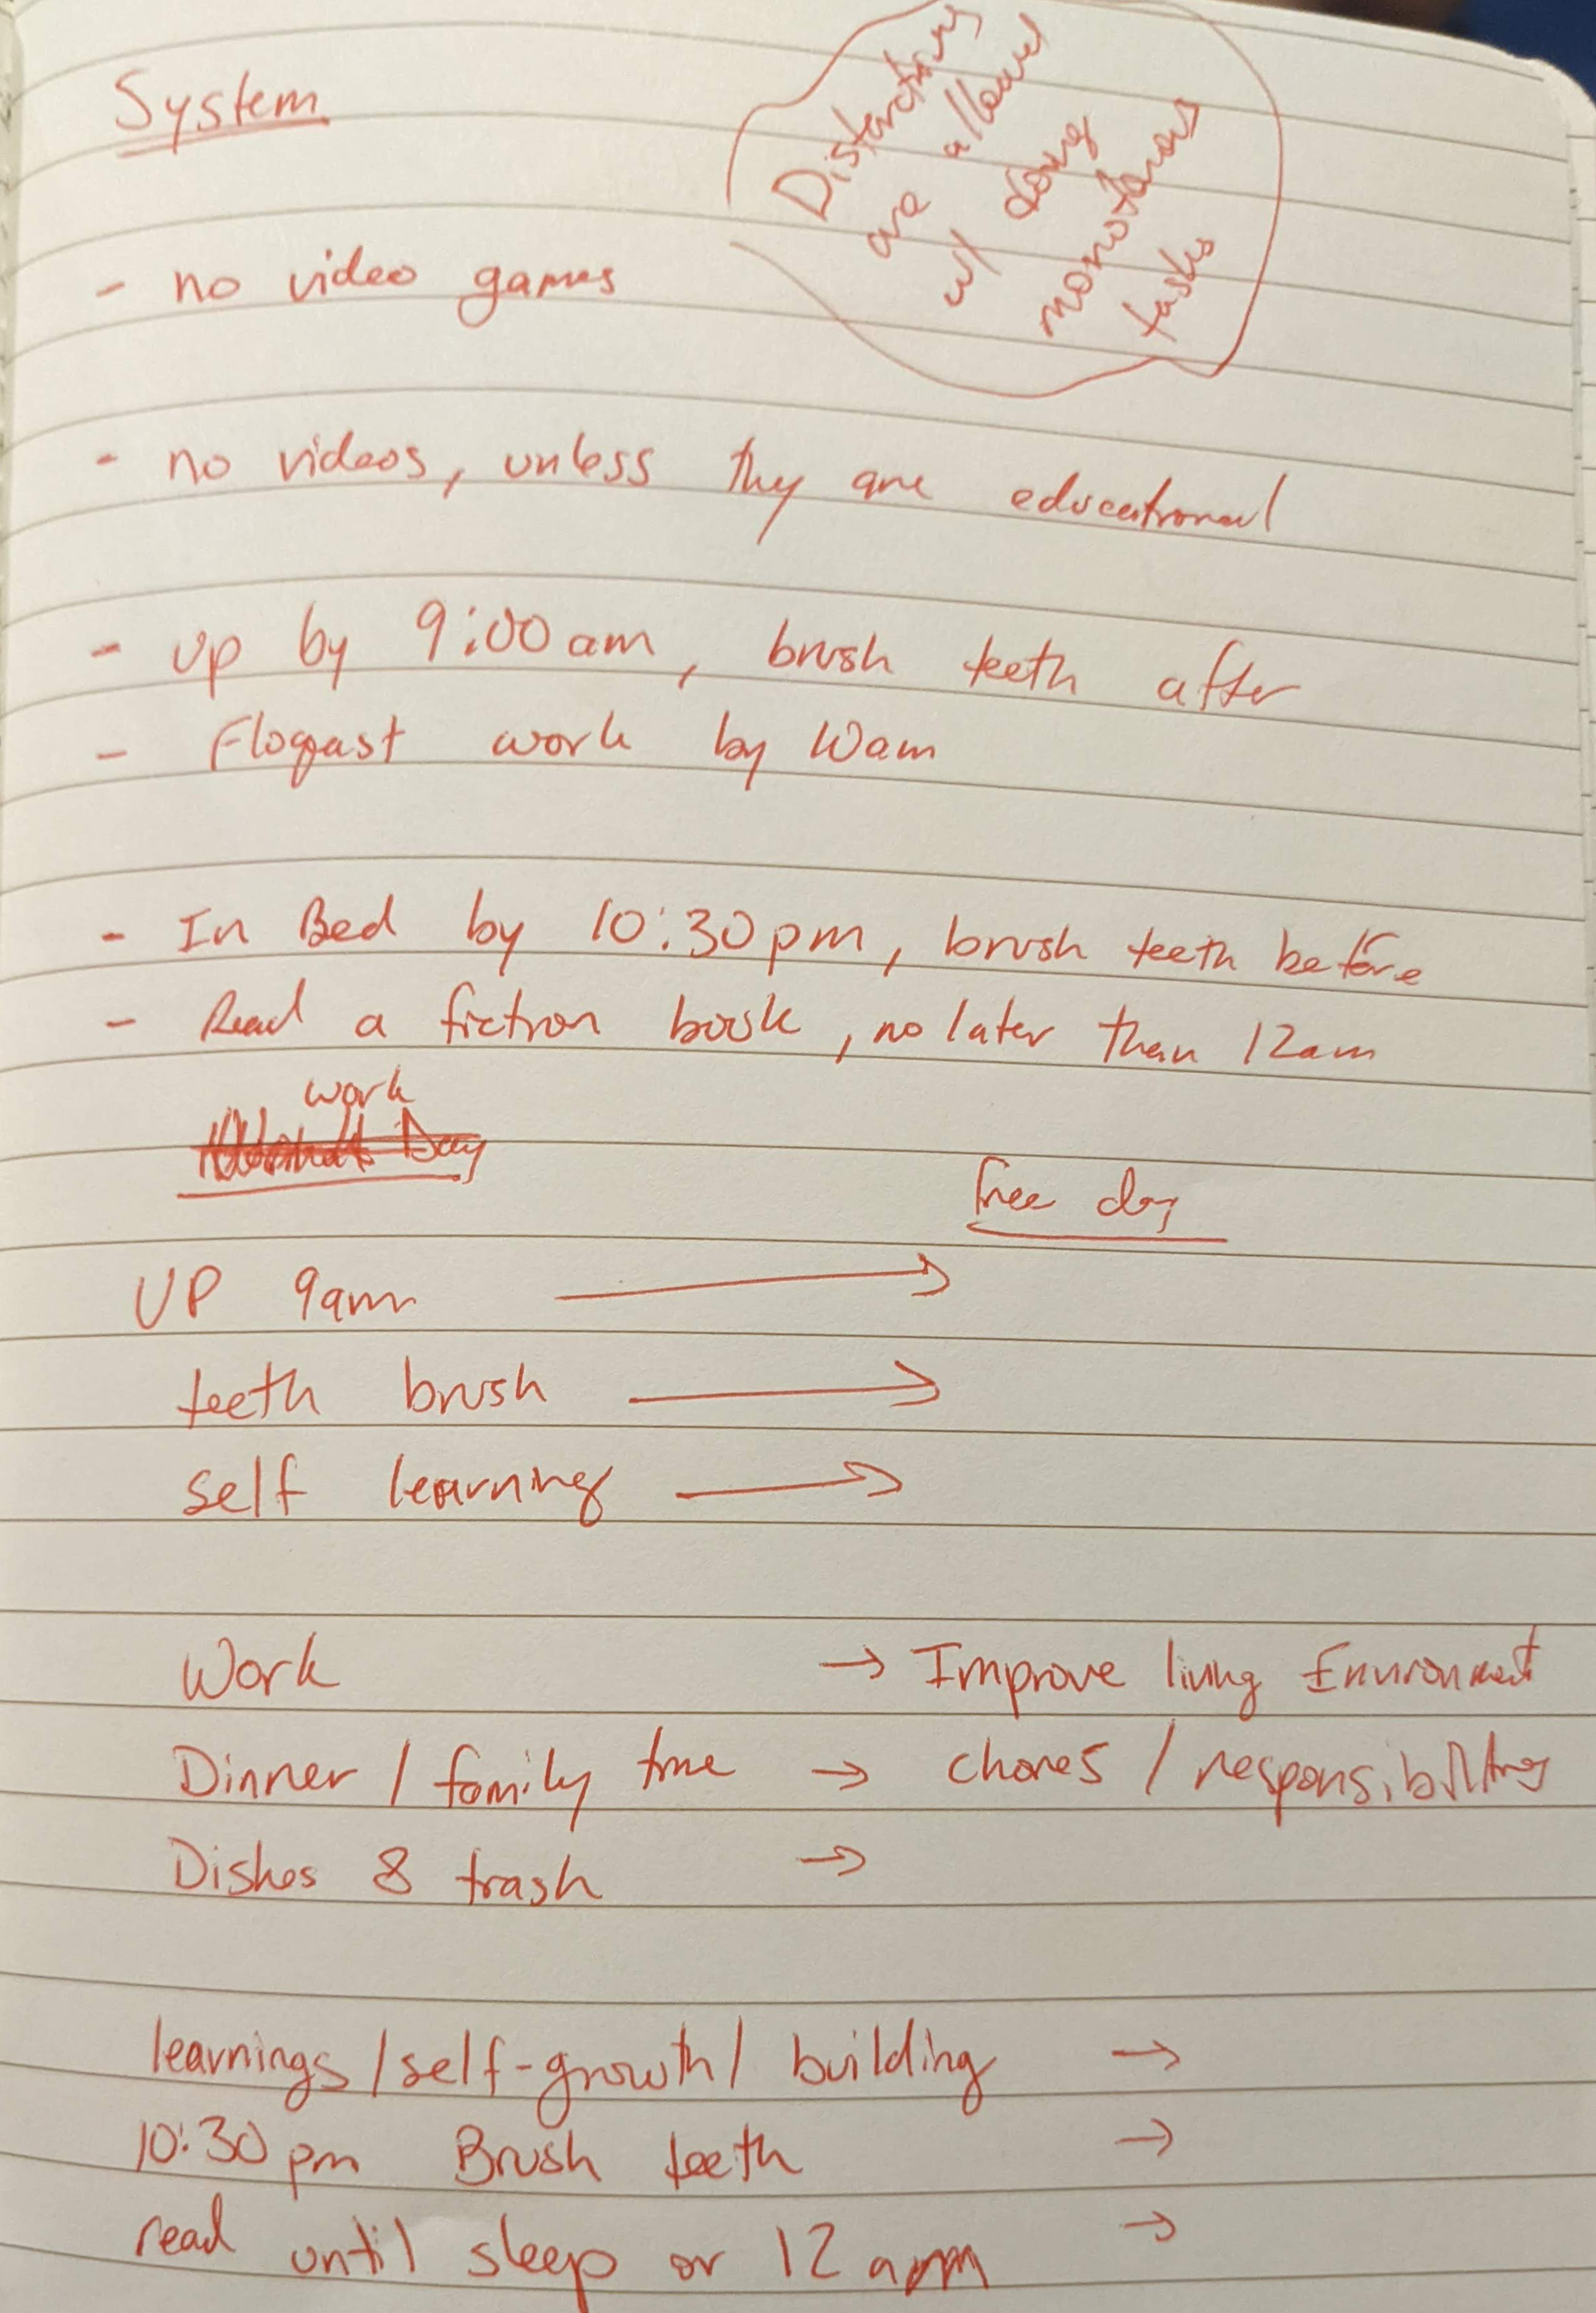 System
Distractions
are allowed
w/ doing
monotonous
tasks
- no video games
- no videos, unless they are educational
- up by 9:00am, brush teeth after
- Floqast work by 10am
- In Bed by 10:30pm, brush teeth before
- Read a fiction book, no later than 12am
work
Day
free day
UP 9am →
teeth brush →
self learning →
Work → Improve living Environment
Dinner / family time → chores / responsibilities
Dishes & trash →
learnings/self-growth/ building →
10:30pm Brush teeth →
read until sleep or 12am →